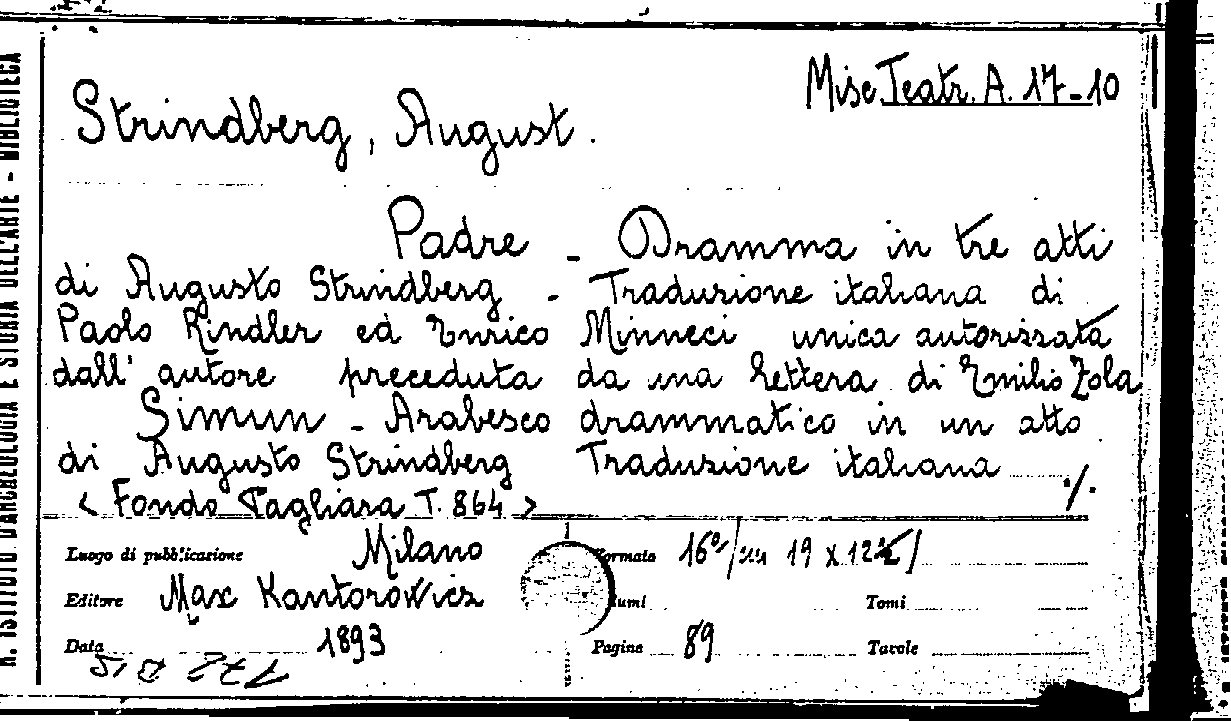 R. ISTITUTO D'ARCHEOLOGIA E STORIA DELL'ARTE - BIBLIOTECA
Misc Teatr. A. 17-10
Strindberg, August.
Padre - Dramma in tre atti
di Augusto Strindberg - Traduzione italiana di
Paolo Rindler ed Enrico Minneci unica autorizzata
dall' autore preceduta da una lettera di Emilio Zola
Simun - Arabesco drammatico in un atto
di Augusto Strindberg Traduzione italiana ./.
< Fondo Tagliara T. 864 >
Luogo di pubblicazione Milano Formato 16°/ 19 x 12 /
Editore Max Kantorowicz Tomi
Data 1893 Pagine 89 Tavole